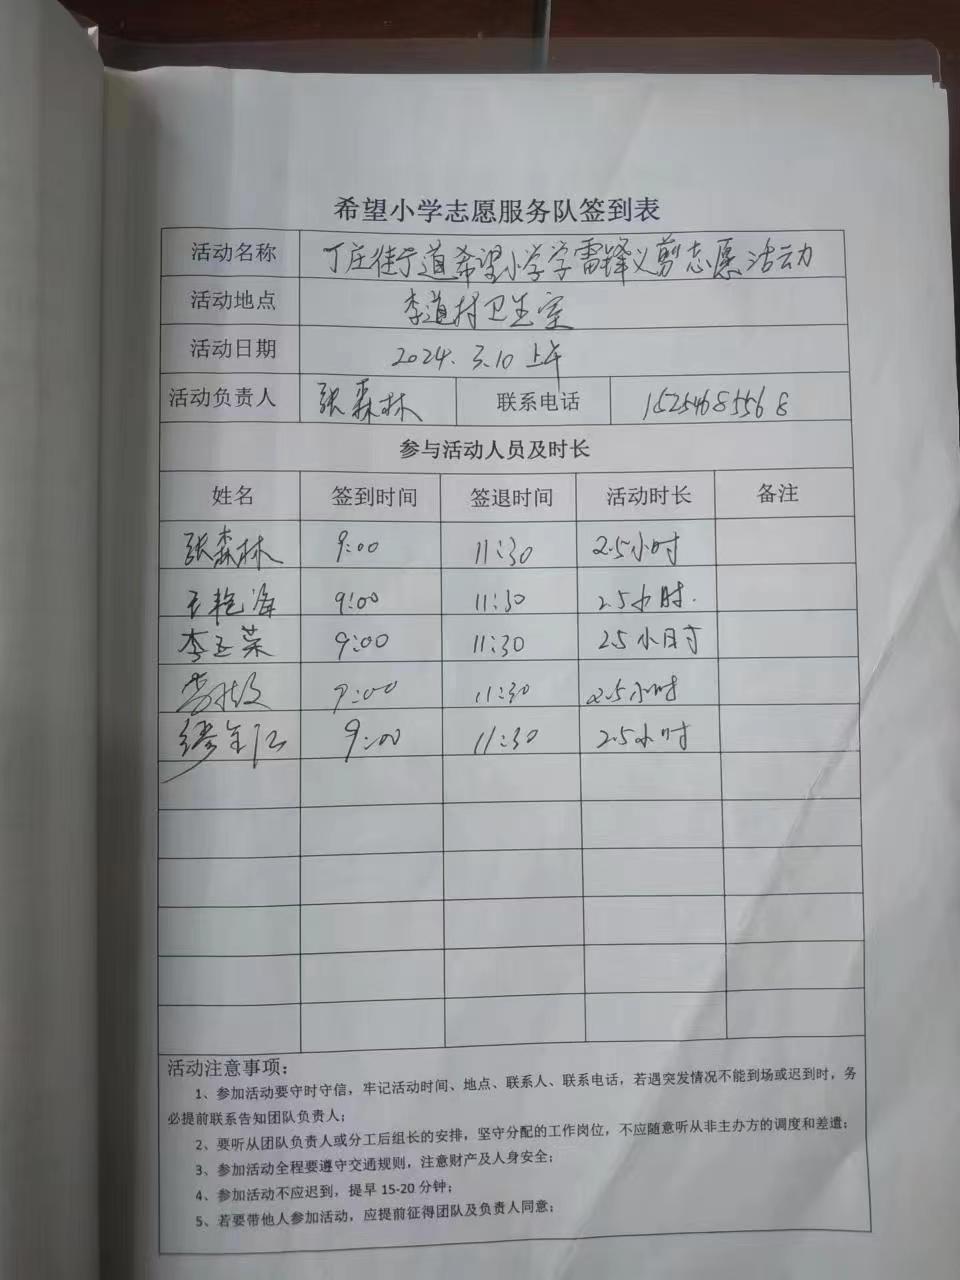 希望小学志愿服务队签到表
活动名称 丁庄街道希望小学学雷锋义剪志愿活动
活动地点 李道村卫生室
活动日期 2024.3.10上午
活动负责人 张森林 联系电话 15254685568
参与活动人员及时长
姓名 签到时间 签退时间 活动时长 备注
张森林 9:00 11:30 2.5小时
王艳海 9:00 11:30 2.5小时.
李玉荣 9:00 11:30 25小时
9:00 11:30 2.5小时
9:00 11:30 2.5小时
活动注意事项：
1、参加活动要守时守信，牢记活动时间、地点、联系人、联系电话，若遇突发情况不能到场或迟到时，务
必提前联系告知团队负责人；
2、要听从团队负责人或分工后组长的安排，坚守分配的工作岗位，不应随意听从非主办方的调度和差遣；
3、参加活动全程要遵守交通规则，注意财产及人身安全；
4、参加活动不应迟到，提早 15-20 分钟；
5、若要带他人参加活动，应提前征得团队及负责人同意；